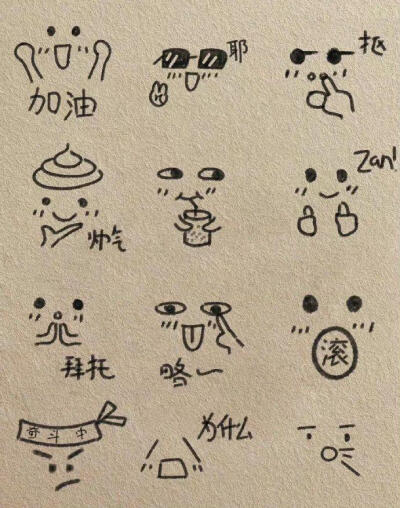 加油
耶
抠
帅气
Zan!
拜托
略一
滚
奋斗中
为什么